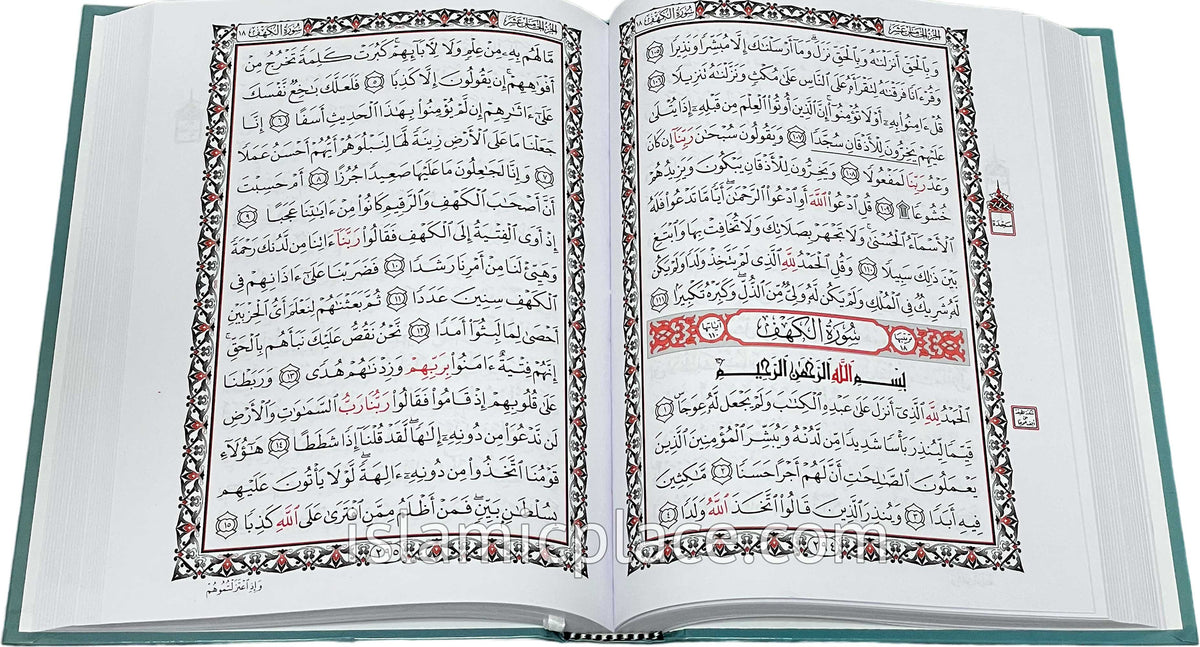 سُورَةُ الكَهْفِ ١٨
الجزء الخامس عشر
وَبِالْحَقِّ أَنزَلْنَاهُ وَبِالْحَقِّ نَزَلَ وَمَا أَرْسَلْنَاكَ إِلَّا مُبَشِّرًا وَنَذِيرًا ١٠٥
وَقُرْءَانًا فَرَقْنَاهُ لِتَقْرَأَهُ عَلَى النَّاسِ عَلَىٰ مُكْثٍ وَنَزَّلْنَاهُ تَنزِيلًا ١٠٦
قُلْ ءَامِنُوا بِهِ أَوْ لَا تُؤْمِنُوا إِنَّ الَّذِينَ أُوتُوا الْعِلْمَ مِن قَبْلِهِ إِذَا يُتْلَىٰ
عَلَيْهِمْ يَخِرُّونَ لِلْأَذْقَانِ سُجَّدًا ١٠٧ وَيَقُولُونَ سُبْحَانَ رَبِّنَا إِن كَانَ
وَعْدُ رَبِّنَا لَمَفْعُولًا ١٠٨ وَيَخِرُّونَ لِلْأَذْقَانِ يَبْكُونَ وَيَزِيدُهُمْ
خُشُوعًا ۩ ١٠٩ قُلِ ادْعُوا اللَّهَ أَوِ ادْعُوا الرَّحْمَٰنَ أَيًّا مَّا تَدْعُوا فَلَهُ
الْأَسْمَاءُ الْحُسْنَىٰ وَلَا تَجْهَرْ بِصَلَاتِكَ وَلَا تُخَافِتْ بِهَا وَابْتَغِ
بَيْنَ ذَٰلِكَ سَبِيلًا ١١٠ وَقُلِ الْحَمْدُ لِلَّهِ الَّذِي لَمْ يَتَّخِذْ وَلَدًا وَلَمْ يَكُن
لَّهُ شَرِيكٌ فِي الْمُلْكِ وَلَمْ يَكُن لَّهُ وَلِيٌّ مِّنَ الذُّلِّ وَكَبِّرْهُ تَكْبِيرًا ١١١
ترتيبها ١٨ سُورَةُ الْكَهْفِ آياتها ١١٠
بِسْمِ اللَّهِ الرَّحْمَٰنِ الرَّحِيمِ
الْحَمْدُ لِلَّهِ الَّذِي أَنزَلَ عَلَىٰ عَبْدِهِ الْكِتَابَ وَلَمْ يَجْعَل لَّهُ عِوَجًا ١
قَيِّمًا لِّيُنذِرَ بَأْسًا شَدِيدًا مِّن لَّدُنْهُ وَيُبَشِّرَ الْمُؤْمِنِينَ الَّذِينَ
يَعْمَلُونَ الصَّالِحَاتِ أَنَّ لَهُمْ أَجْرًا حَسَنًا ٢ مَّاكِثِينَ
فِيهِ أَبَدًا ٣ وَيُنذِرَ الَّذِينَ قَالُوا اتَّخَذَ اللَّهُ وَلَدًا ٤
سجدة
سُورَةُ الكَهْفِ ١٨
الجزء الخامس عشر
مَّا لَهُم بِهِ مِنْ عِلْمٍ وَلَا لِآبَائِهِمْ كَبُرَتْ كَلِمَةً تَخْرُجُ مِنْ
أَفْوَاهِهِمْ إِن يَقُولُونَ إِلَّا كَذِبًا ٥ فَلَعَلَّكَ بَاخِعٌ نَّفْسَكَ
عَلَىٰ ءَاثَارِهِمْ إِن لَّمْ يُؤْمِنُوا بِهَٰذَا الْحَدِيثِ أَسَفًا ٦ إِنَّا
جَعَلْنَا مَا عَلَى الْأَرْضِ زِينَةً لَّهَا لِنَبْلُوَهُمْ أَيُّهُمْ أَحْسَنُ عَمَلًا
٧ وَإِنَّا لَجَاعِلُونَ مَا عَلَيْهَا صَعِيدًا جُرُزًا ٨ أَمْ حَسِبْتَ
أَنَّ أَصْحَابَ الْكَهْفِ وَالرَّقِيمِ كَانُوا مِنْ ءَايَاتِنَا عَجَبًا ٩
إِذْ أَوَى الْفِتْيَةُ إِلَى الْكَهْفِ فَقَالُوا رَبَّنَا ءَاتِنَا مِن لَّدُنكَ رَحْمَةً
وَهَيِّئْ لَنَا مِنْ أَمْرِنَا رَشَدًا ١٠ فَضَرَبْنَا عَلَىٰ ءَاذَانِهِمْ فِي
الْكَهْفِ سِنِينَ عَدَدًا ١١ ثُمَّ بَعَثْنَاهُمْ لِنَعْلَمَ أَيُّ الْحِزْبَيْنِ
أَحْصَىٰ لِمَا لَبِثُوا أَمَدًا ١٢ نَّحْنُ نَقُصُّ عَلَيْكَ نَبَأَهُم بِالْحَقِّ
إِنَّهُمْ فِتْيَةٌ ءَامَنُوا بِرَبِّهِمْ وَزِدْنَاهُمْ هُدًى ١٣ وَرَبَطْنَا
عَلَىٰ قُلُوبِهِمْ إِذْ قَامُوا فَقَالُوا رَبُّنَا رَبُّ السَّمَاوَاتِ وَالْأَرْضِ
لَن نَّدْعُوَا مِن دُونِهِ إِلَٰهًا لَّقَدْ قُلْنَا إِذًا شَطَطًا ١٤ هَٰؤُلَاءِ
قَوْمُنَا اتَّخَذُوا مِن دُونِهِ ءَالِهَةً لَّوْلَا يَأْتُونَ عَلَيْهِم
بِسُلْطَانٍ بَيِّنٍ فَمَنْ أَظْلَمُ مِمَّنِ افْتَرَىٰ عَلَى اللَّهِ كَذِبًا ١٥
وَإِذِ اعْتَزَلْتُمُوهُمْ
islamicplace.com